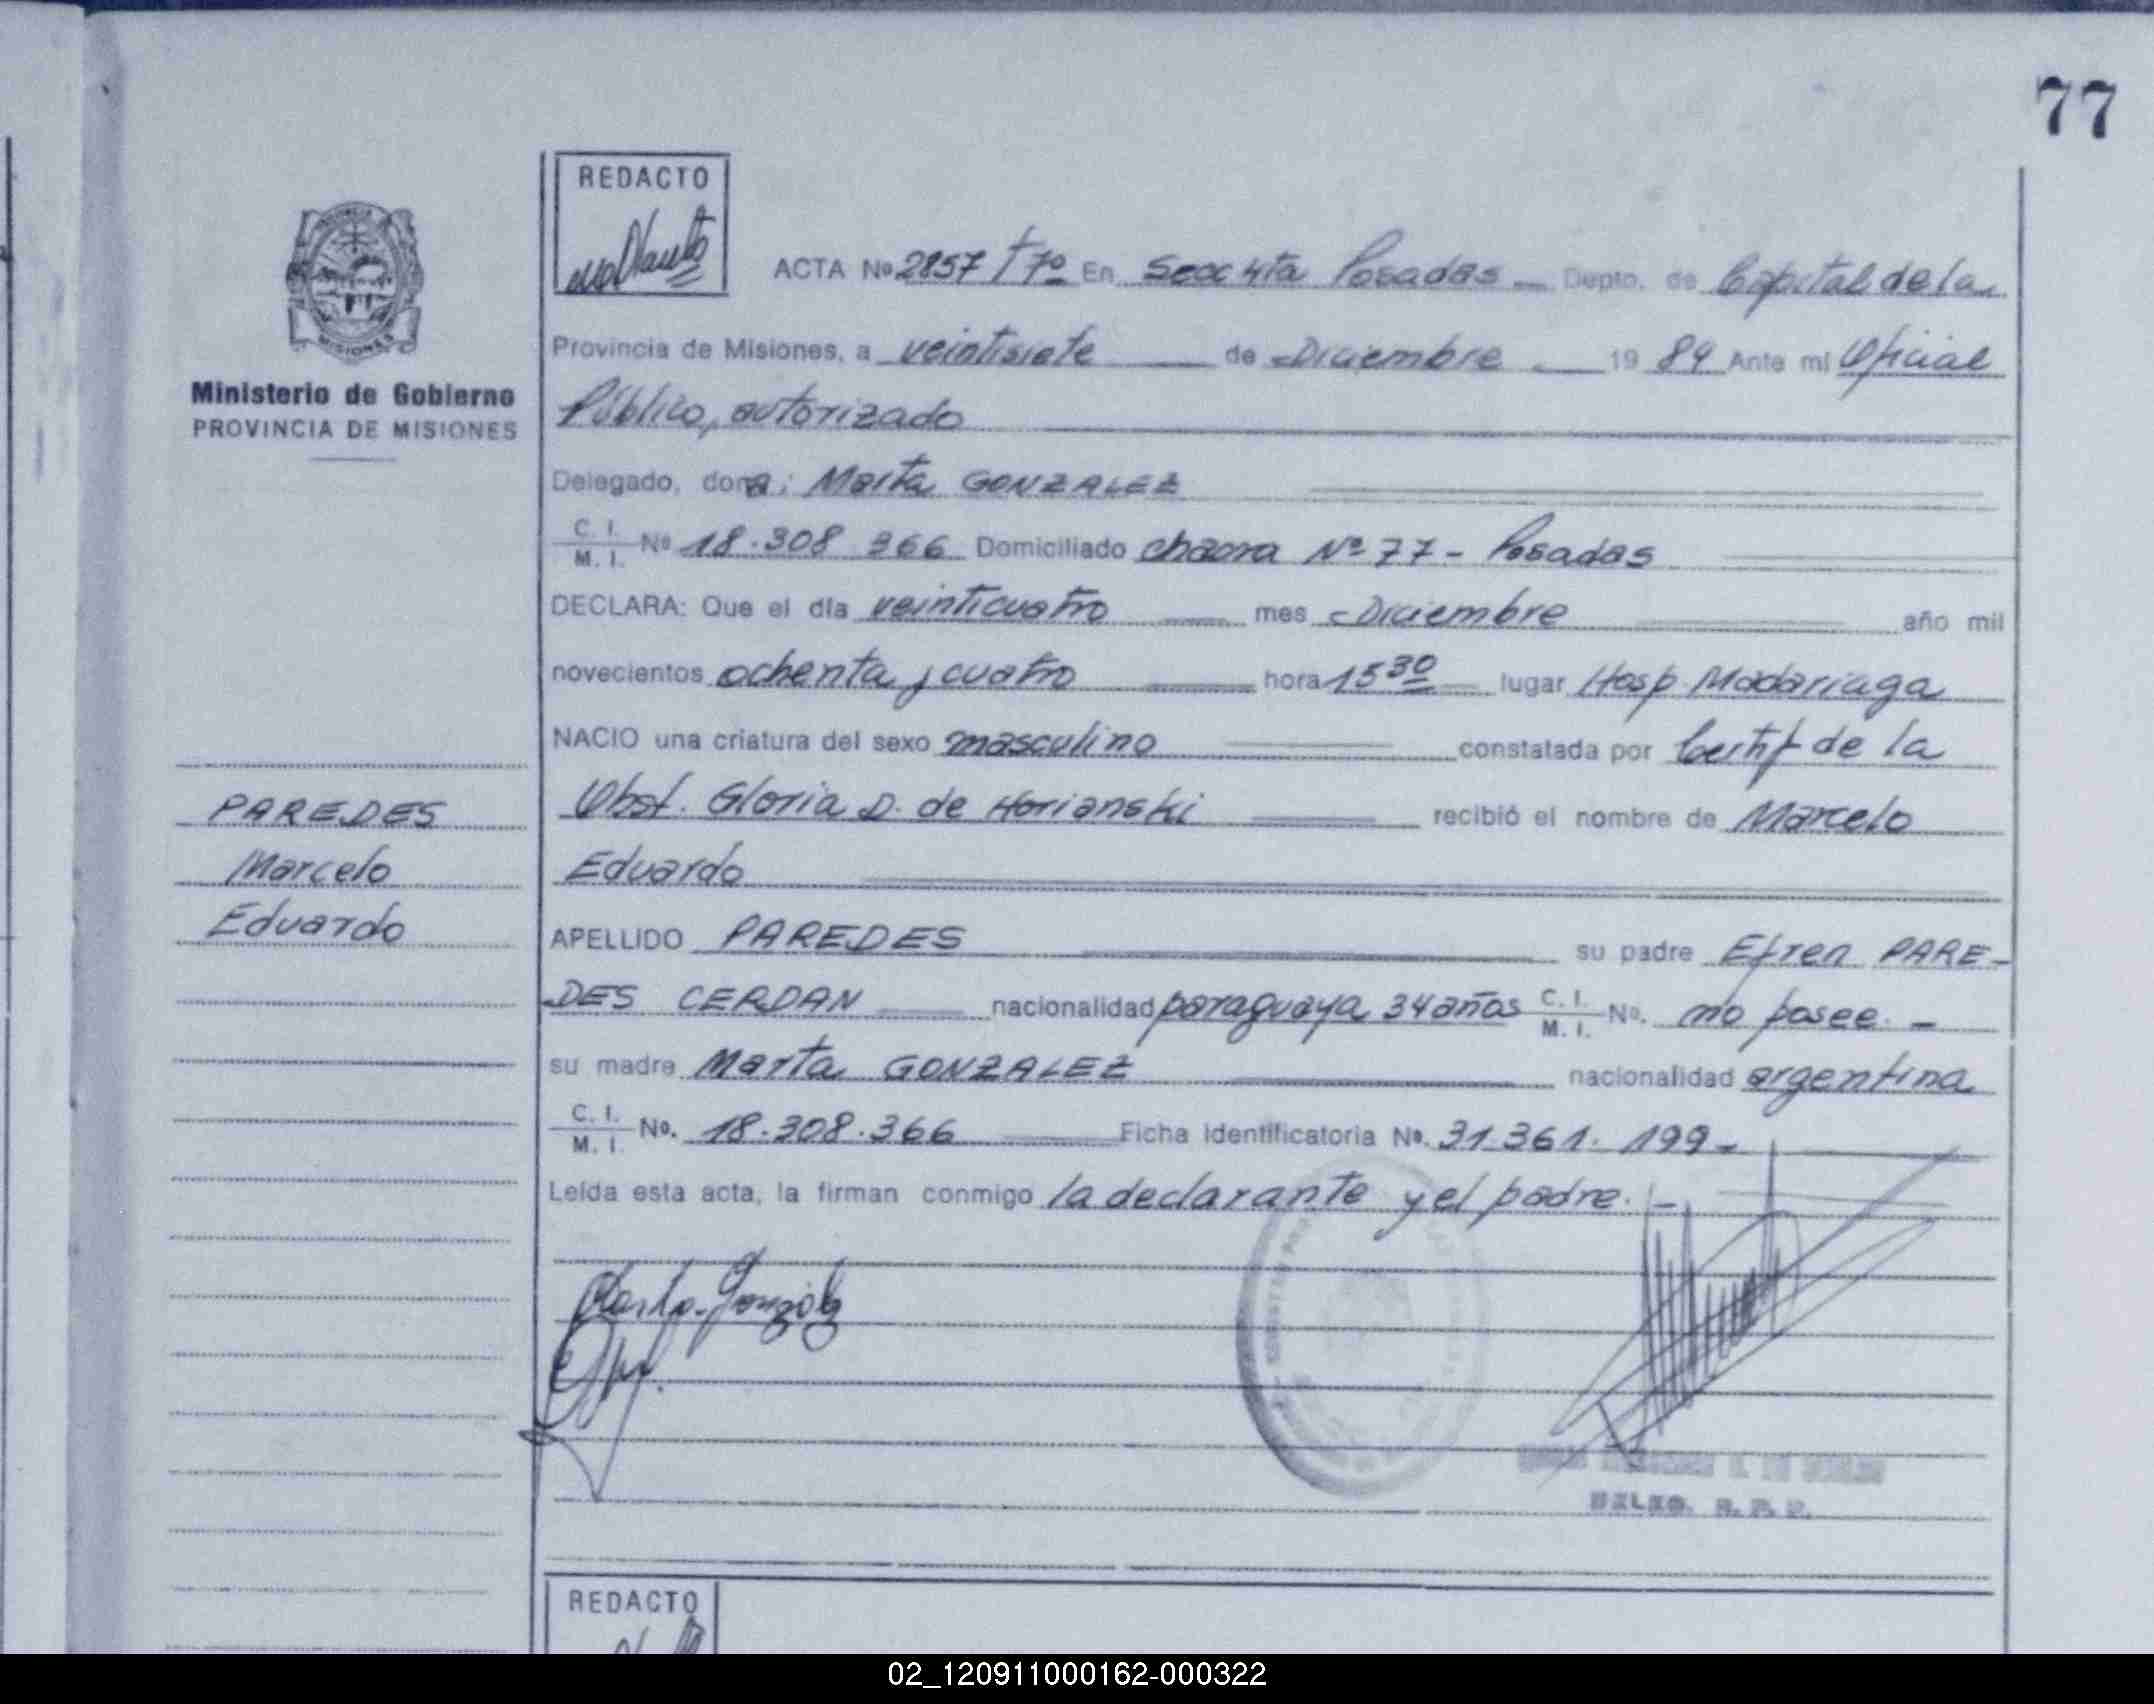 77
REDACTO
ACTA Nº 2857 Tº 7º En Secc 4ta Posadas Depto. de Capital de la
Provincia de Misiones, a veintisiete de Diciembre 1984 Ante mí Oficial
Ministerio de Gobierno
PROVINCIA DE MISIONES
Público, autorizado
Delegado, dona: Marta GONZALEZ
C. I. M. I. Nº 18.308 366 Domiciliado chacra Nº 77 - Posadas
DECLARA: Que el día veinticuatro mes Diciembre año mil
novecientos ochenta y cuatro hora 15 30 lugar Hosp. Madariaga
NACIO una criatura del sexo masculino constatada por Certif de la
Obst. Gloria D. de Horianski recibió el nombre de Marcelo
Eduardo
PAREDES
Marcelo
Eduardo
APELLIDO PAREDES su padre Efren PARE-
DES CERDAN nacionalidad paraguaya 34 años C. I. M. I. No. no posee. -
su madre Marta GONZALEZ nacionalidad argentina
C. I. M. I. No. 18.308.366 Ficha Identificatoria No. 31.361.199-
Leída esta acta, la firman conmigo la declarante y el padre. -
Marta Gonzalez
REDACTO
02_120911000162-000322